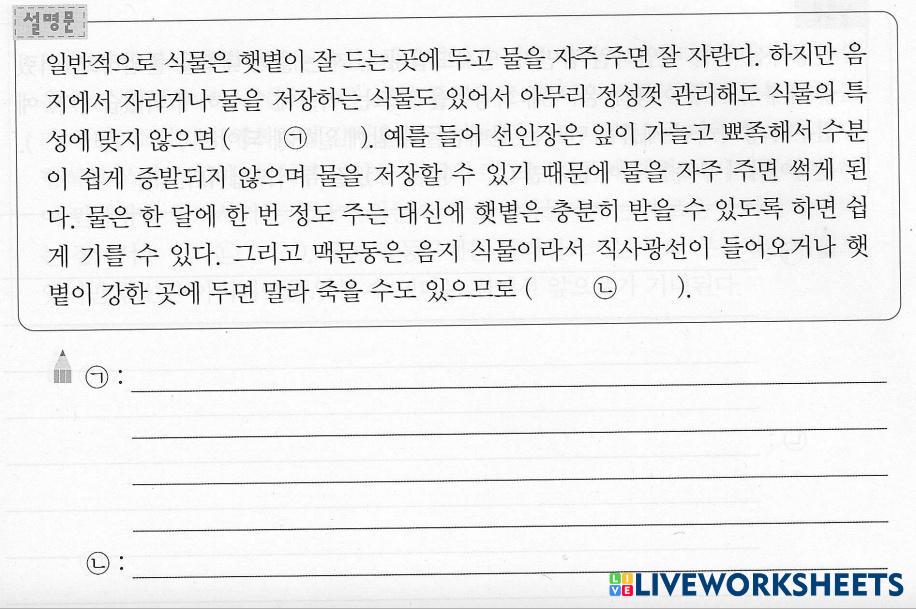 설명문
일반적으로 식물은 햇볕이 잘 드는 곳에 두고 물을 자주 주면 잘 자란다. 하지만 음
지에서 자라거나 물을 저장하는 식물도 있어서 아무리 정성껏 관리해도 식물의 특
성에 맞지 않으면 ( ㉠ ). 예를 들어 선인장은 잎이 가늘고 뾰족해서 수분
이 쉽게 증발되지 않으며 물을 저장할 수 있기 때문에 물을 자주 주면 썩게 된
다. 물은 한 달에 한 번 정도 주는 대신에 햇볕은 충분히 받을 수 있도록 하면 쉽
게 기를 수 있다. 그리고 맥문동은 음지 식물이라서 직사광선이 들어오거나 햇
볕이 강한 곳에 두면 말라 죽을 수도 있으므로 ( ㉡ ).
㉠ :
㉡ :
LIVEWORKSHEETS